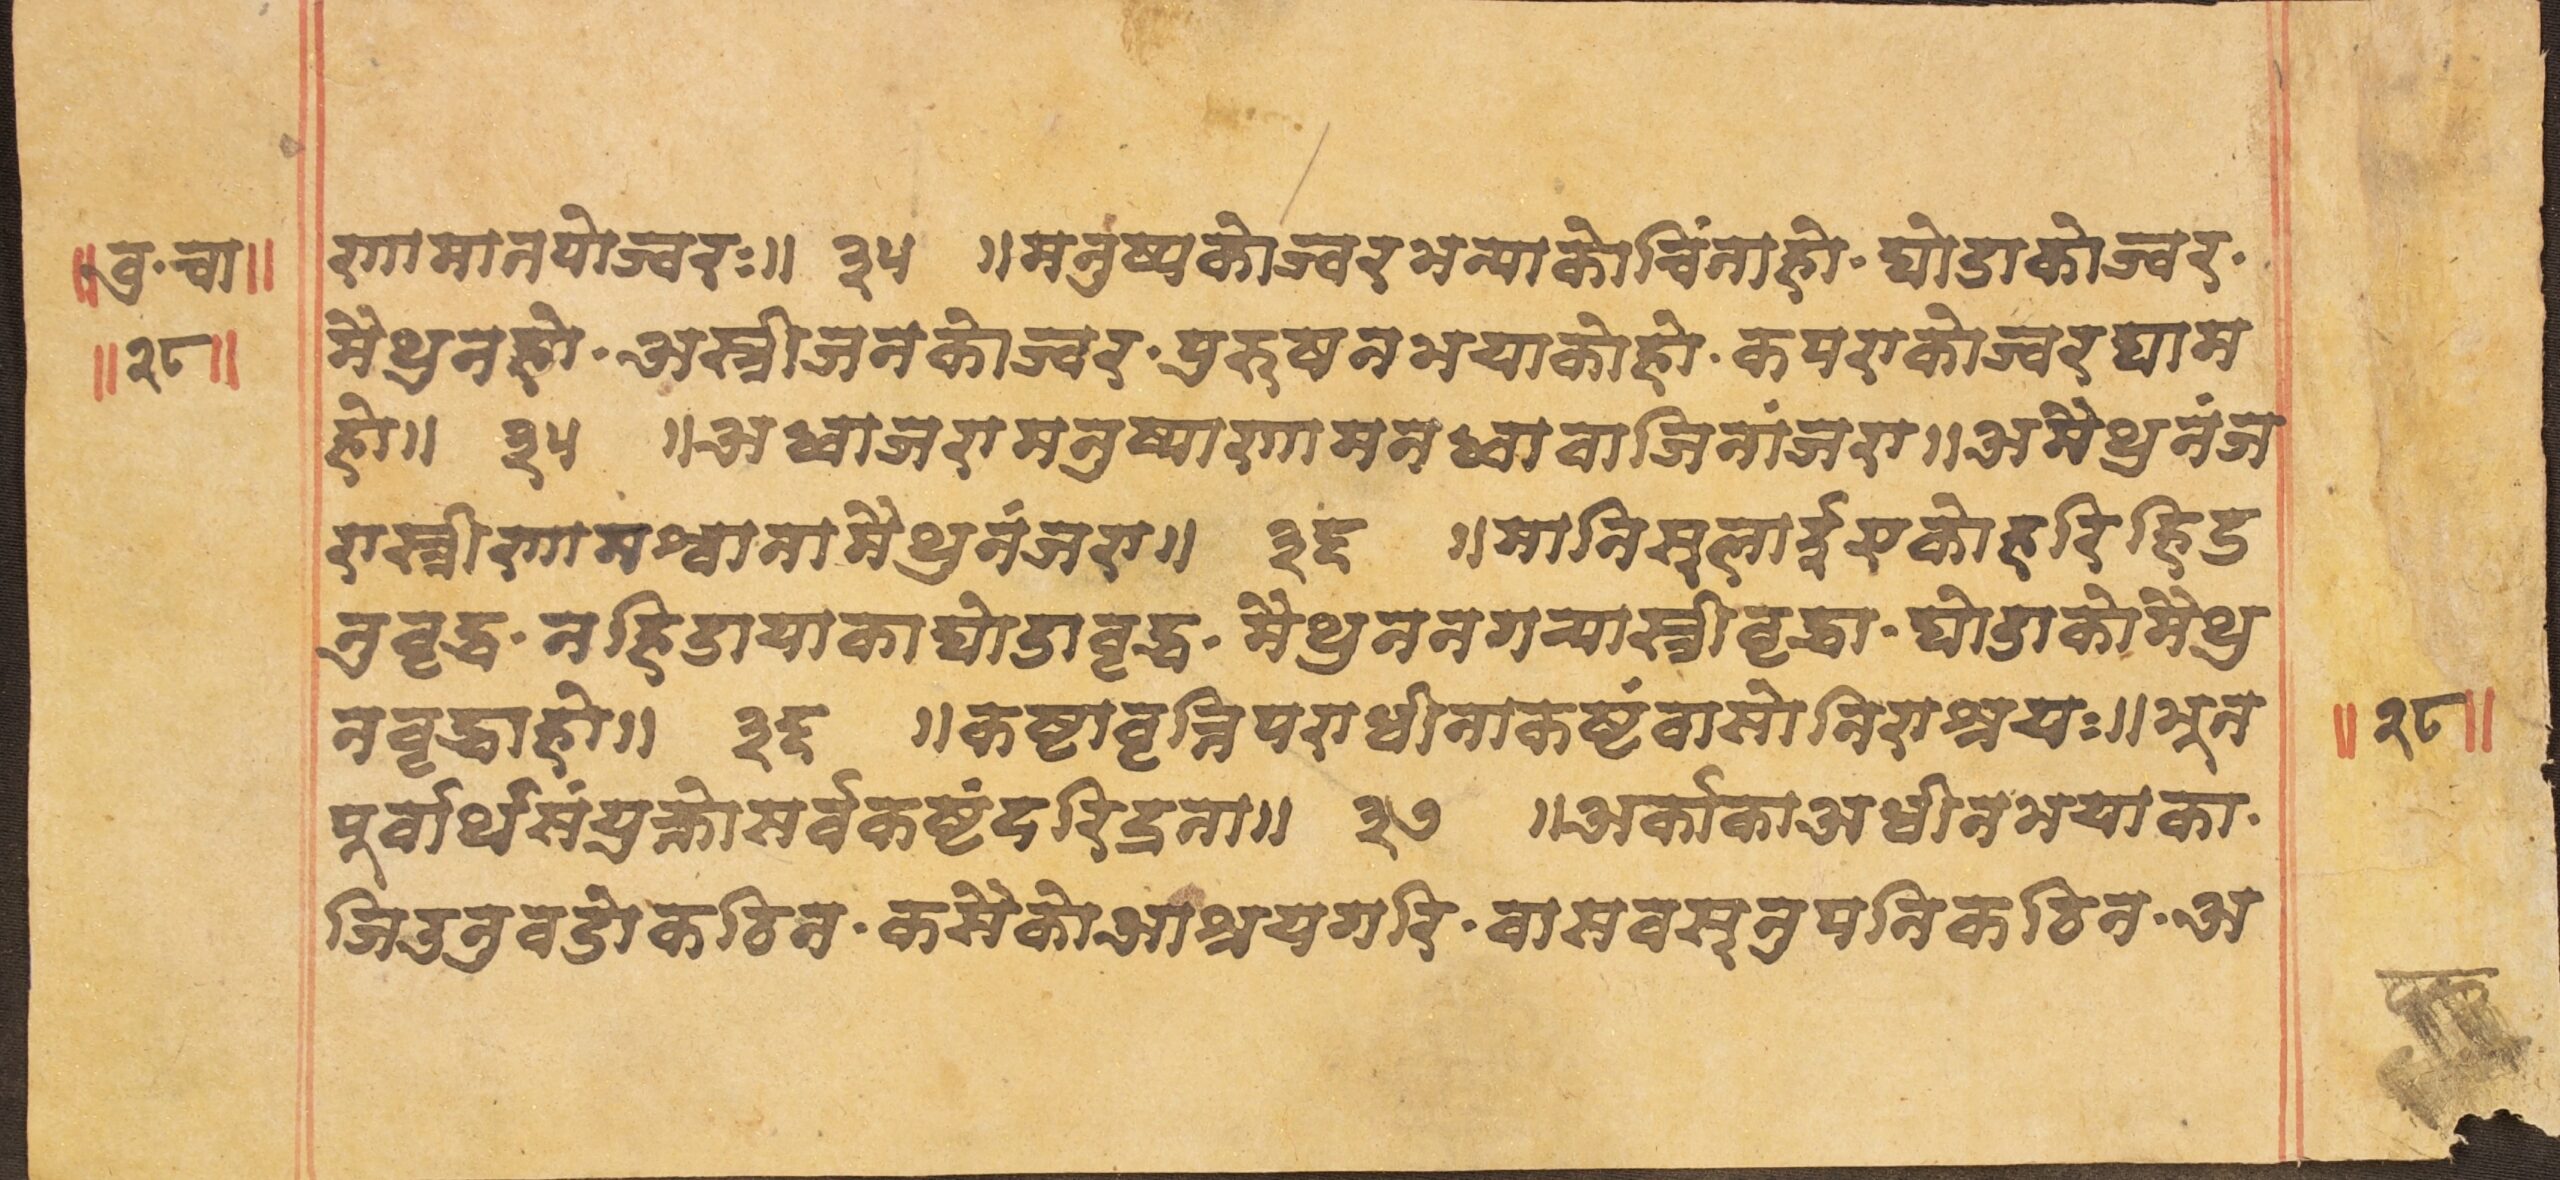 ॥वु·चा॥
॥२८॥
रणामातपोज्वरः॥ ३५ ॥मनुष्यकोज्वरभन्याकोचिंताहो·घोडाकोज्वर·
मैथुनहो·अस्त्रीजनकोज्वर·पुरुषनभयाकोहो·कपराकोज्वरघाम
हो॥ ३५ ॥अध्वाजरामनुष्याणामनध्वावाजिनांजरा॥अमैथुनंज
रास्त्रीणामश्वानामैथुनंजरा॥ ३६ ॥मानिसूलाईएकोहरिहिड
नुवृद्ध·नहिडायाकाघोडावृद्ध·मैथुननगन्यास्त्रीवृद्धा·घोडाकोमैथु
नवृद्धाहो॥ ३६ ॥कष्टावृत्तिपराधीनाकष्टंवासोनिराश्रयः॥भूत
पूर्वार्थसंयुक्तोसर्वकष्टंदरिद्रता॥ ३७ ॥अर्काकाअधीनभयाका·
जिउनुवडोकठिन·कसैकोआश्रयगरि·वासवस्नुपनिकठिन·अ
॥२८॥